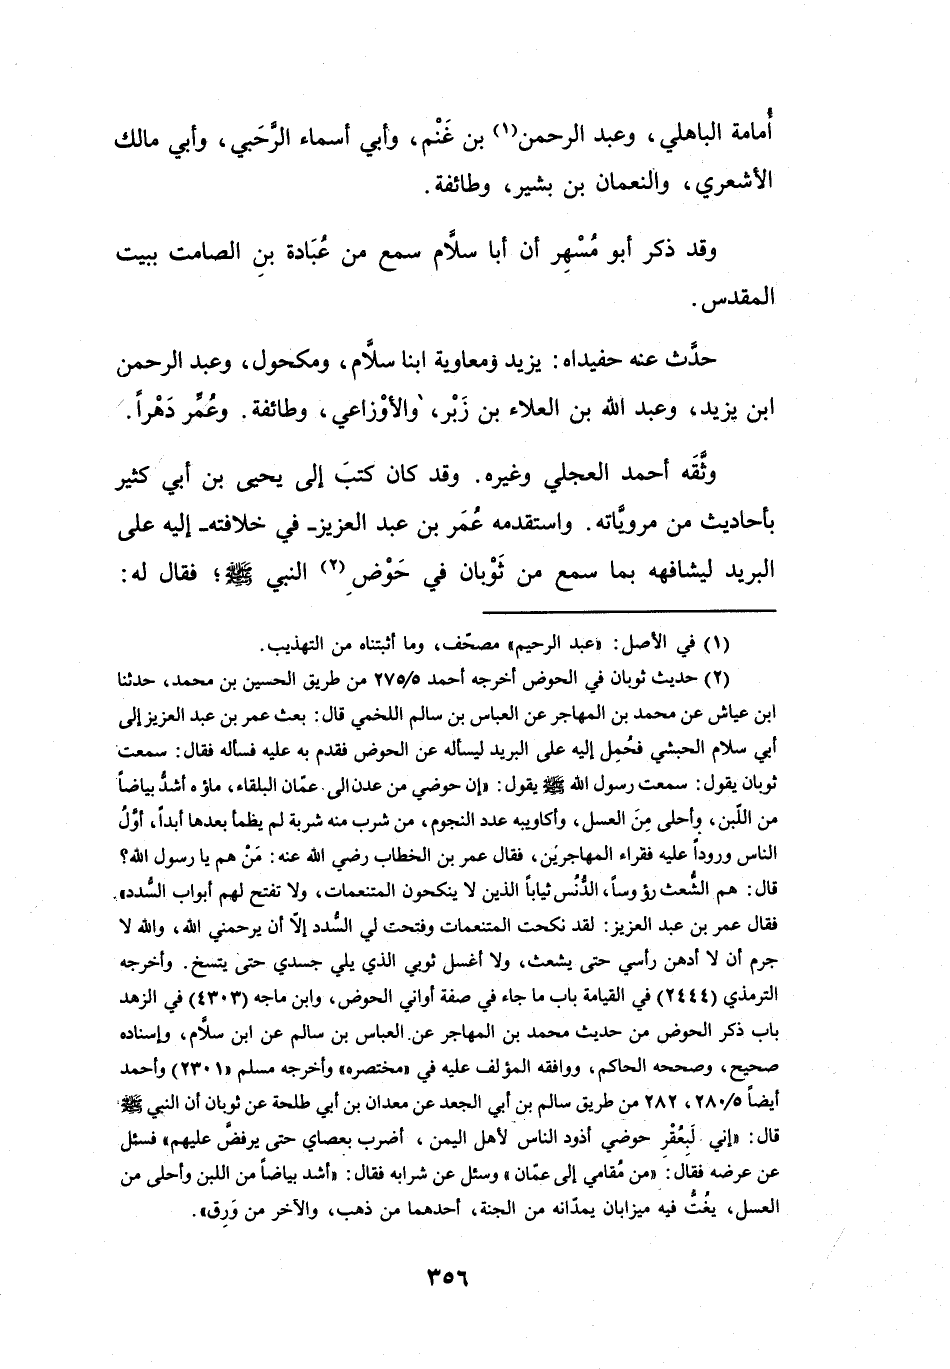 أُمامة الباهلي، وعبد الرحمن(١) بن غَنْم، وأبي أسماء الرَّحَبي، وأبي مالك
الأشعري، والنعمان بن بشير، وطائفة.
وقد ذكر أبو مُسْهِر أن أبا سلَّام سمع من عُبَادة بنِ الصامت ببيت
المقدس.
حدَّث عنه حفيداه: يزيد ومعاوية ابنا سلَّام، ومكحول، وعبد الرحمن
ابن يزيد، وعبد الله بن العلاء بن زَبْر، والأوْزاعي، وطائفة. وعُمِّر دَهْراً.
وثَّقَه أحمد العجلي وغيره. وقد كان كتبَ إلى يحيى بن أبي كثير
بأحاديث من مرويَّاته. واستقدمه عُمَر بن عبد العزيزـ في خلافتهـ إليه على
البريد ليشافهه بما سمع من ثَوْبان في حَوْضِ(٢) النبي ﷺ؛ فقال له:
(١) في الأصل: «عبد الرحيم» مصحّف، وما أثبتناه من التهذيب.
(٢) حديث ثوبان في الحوض أخرجه أحمد ٢٧٥/٥ من طريق الحسين بن محمد، حدثنا
ابن عياش عن محمد بن المهاجر عن العباس بن سالم اللخمي قال: بعث عمر بن عبد العزيز إلى
أبي سلام الحبشي فحُمِل إليه على البريد ليسأله عن الحوض فقدم به عليه فسأله فقال: سمعت
ثوبان يقول: سمعت رسول الله ﷺ يقول: «إن حوضي من عدن الى عمّان البلقاء، ماؤه أشدُّ بياضاً
من اللّبن، وأحلى مِنَ العسل، وأكاويبه عدد النجوم، من شرب منه شربة لم يظمأ بعدها أبداً، أوَّلُ
الناس وروداً عليه فقراء المهاجرين، فقال عمر بن الخطاب رضي الله عنه: مَنْ هم يا رسول الله؟
قال: هم الشُّعث رؤوساً، الدُّنُس ثياباً الذين لا ينكحون المتنعمات، ولا تفتح لهم أبواب السُّدد».
فقال عمر بن عبد العزيز: لقد نكحت المتنعمات وفتحت لي السُّدد إلّا أن يرحمني الله، والله لا
جرم أن لا أدهن رأسي حتى يشعث، ولا أغسل ثوبي الذي يلي جسدي حتى يتسخ. وأخرجه
الترمذي (٢٤٤٤) في القيامة باب ما جاء في صفة أواني الحوض، وابن ماجه (٤٣٠٣) في الزهد
باب ذكر الحوض من حديث محمد بن المهاجر عن العباس بن سالم عن ابن سلَّام، وإسناده
صحيح، وصححه الحاكم، ووافقه المؤلف عليه في «مختصره» وأخرجه مسلم (٢٣٠١) وأحمد
أيضاً ٢٨٠/٥، ٢٨٢ من طريق سالم بن أبي الجعد عن معدان بن أبي طلحة عن ثوبان أن النبي ﷺ
قال: «إني لَبِعُقْرِ حوضي أذود الناس لأهل اليمن، أضرب بعصاي حتى يرفضَّ عليهم» فسئل
عن عرضه فقال: «من مُقامي إلى عمّان» وسئل عن شرابه فقال: «أشد بياضاً من اللبن وأحلى من
العسل، يغُتُّ فيه ميزابان يمدّانه من الجنة، أحدهما من ذهب، والآخر من وَرِق».
٣٥٦